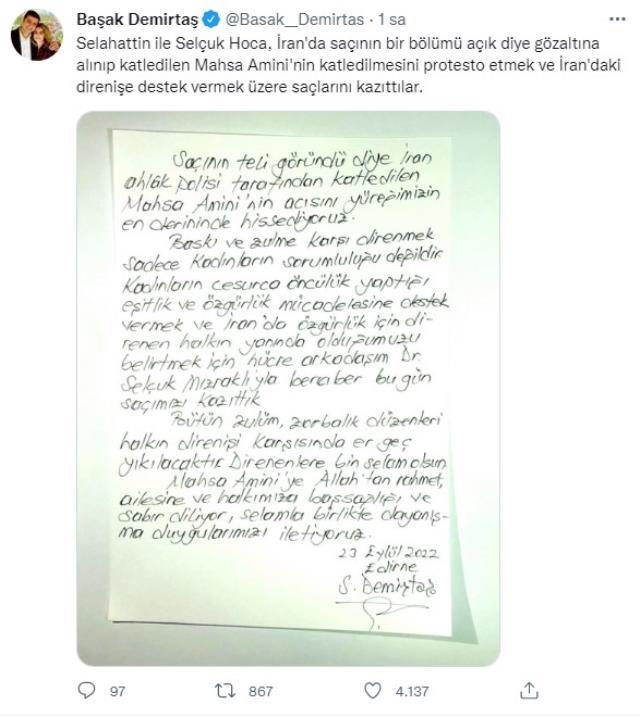 Başak Demirtaş @Basak__Demirtas · 1 sa
Selahattin ile Selçuk Hoca, İran'da saçının bir bölümü açık diye gözaltına
alınıp katledilen Mahsa Amini'nin katledilmesini protesto etmek ve İran'daki
direnişe destek vermek üzere saçlarını kazıttılar.
Saçının teli göründü diye İran
ahlâk polisi tarafından katledilen
Mahsa Amini'nin acısını yüreğimizin
en derininde hissediyoruz.
Baskı ve zulme karşı direnmek
sadece kadınların sorumluluğu değildir.
Kadınların cesurca öncülük yaptığı
eşitlik ve özgürlük mücadelesine destek
vermek ve İran'da özgürlük için di-
renen halkın yanında olduğumuzu
belirtmek için hücre arkadaşım Dr.
Selçuk Mızraklı'yla beraber bugün
saçımızı kazıttık
Bütün zulüm, zorbalık düzenleri
halkın direnişi karşısında er geç
yıkılacaktır. Direnenlere bin selam olsun
Mahsa Amini'ye Allah'tan rahmet,
ailesine ve halkımıza başsağlığı ve
sabır diliyor, selamla birlikte dayanış-
ma duygularımızı iletiyoruz.
23 Eylül 2022
Edirne
S. Demirtaş
97 867 4.137